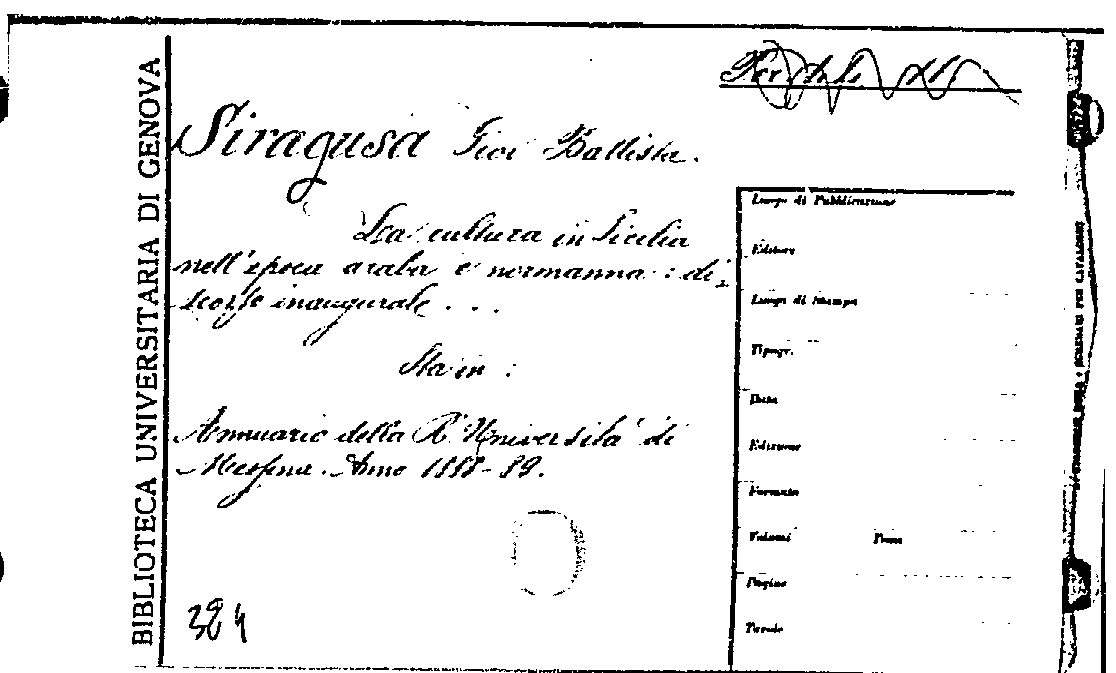 BIBLIOTECA UNIVERSITARIA DI GENOVA
Siragusa Giov Battista.
La cultura in Sicilia
nell'epoca araba e normanna : di
scorso inaugurale . . .
Sta in :
Annuario della R. Università di
Messina. Anno 1888-89.
324
Luogo di Pubblicazione
Editore
Luogo di Stampa
Tipogr.
Data
Edizione
Formato
Volumi Dono
Pagine
Tavole